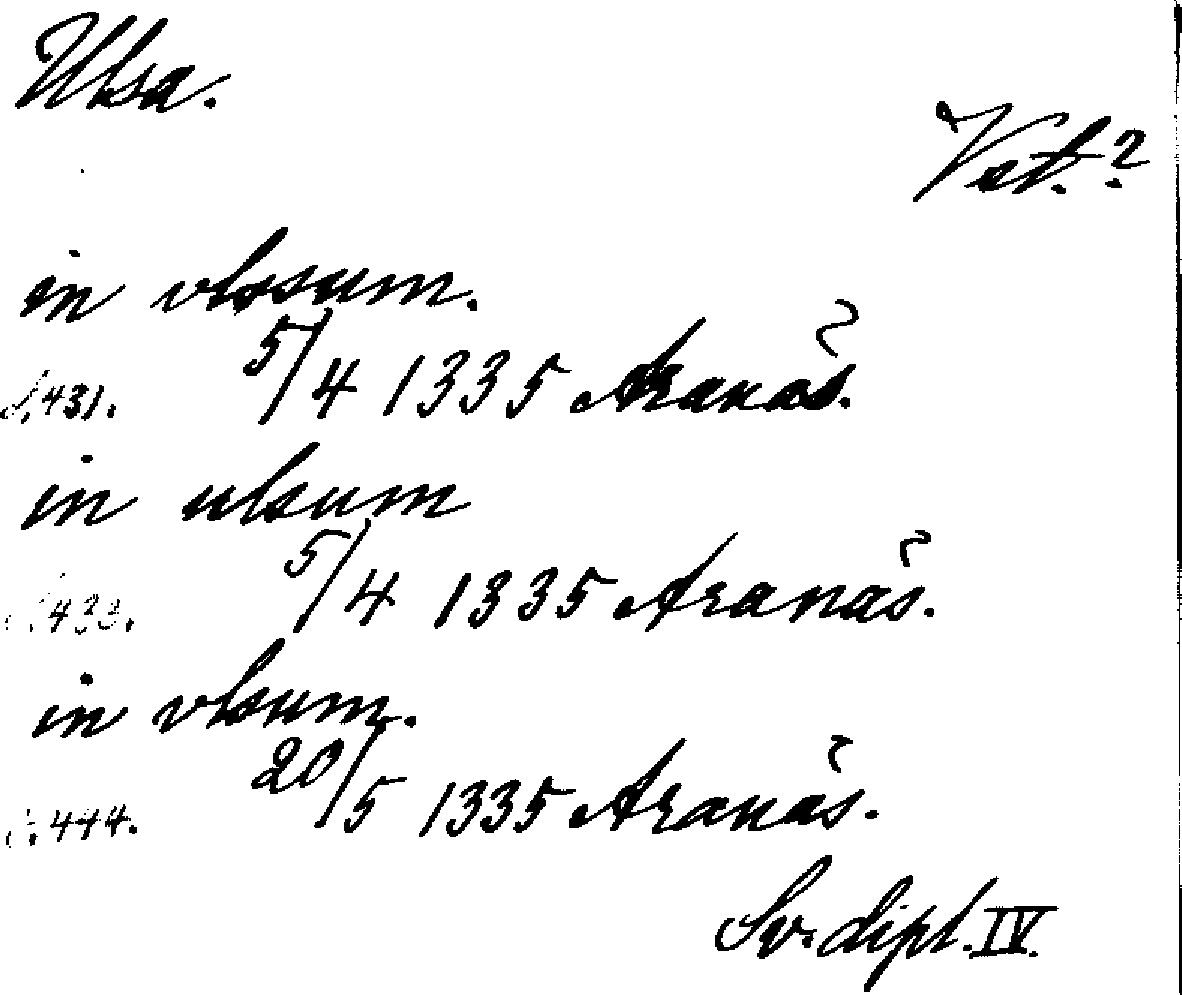 Ulsa.
Vet.?
in vlssum.
S. 431. 5/4 1335 Aranäs.
in ulsum
S. 433. 5/4 1335 Aranäs.
in vlsum.
S. 444. 20/5 1335 Aranäs.
Sv. dipl. IV.